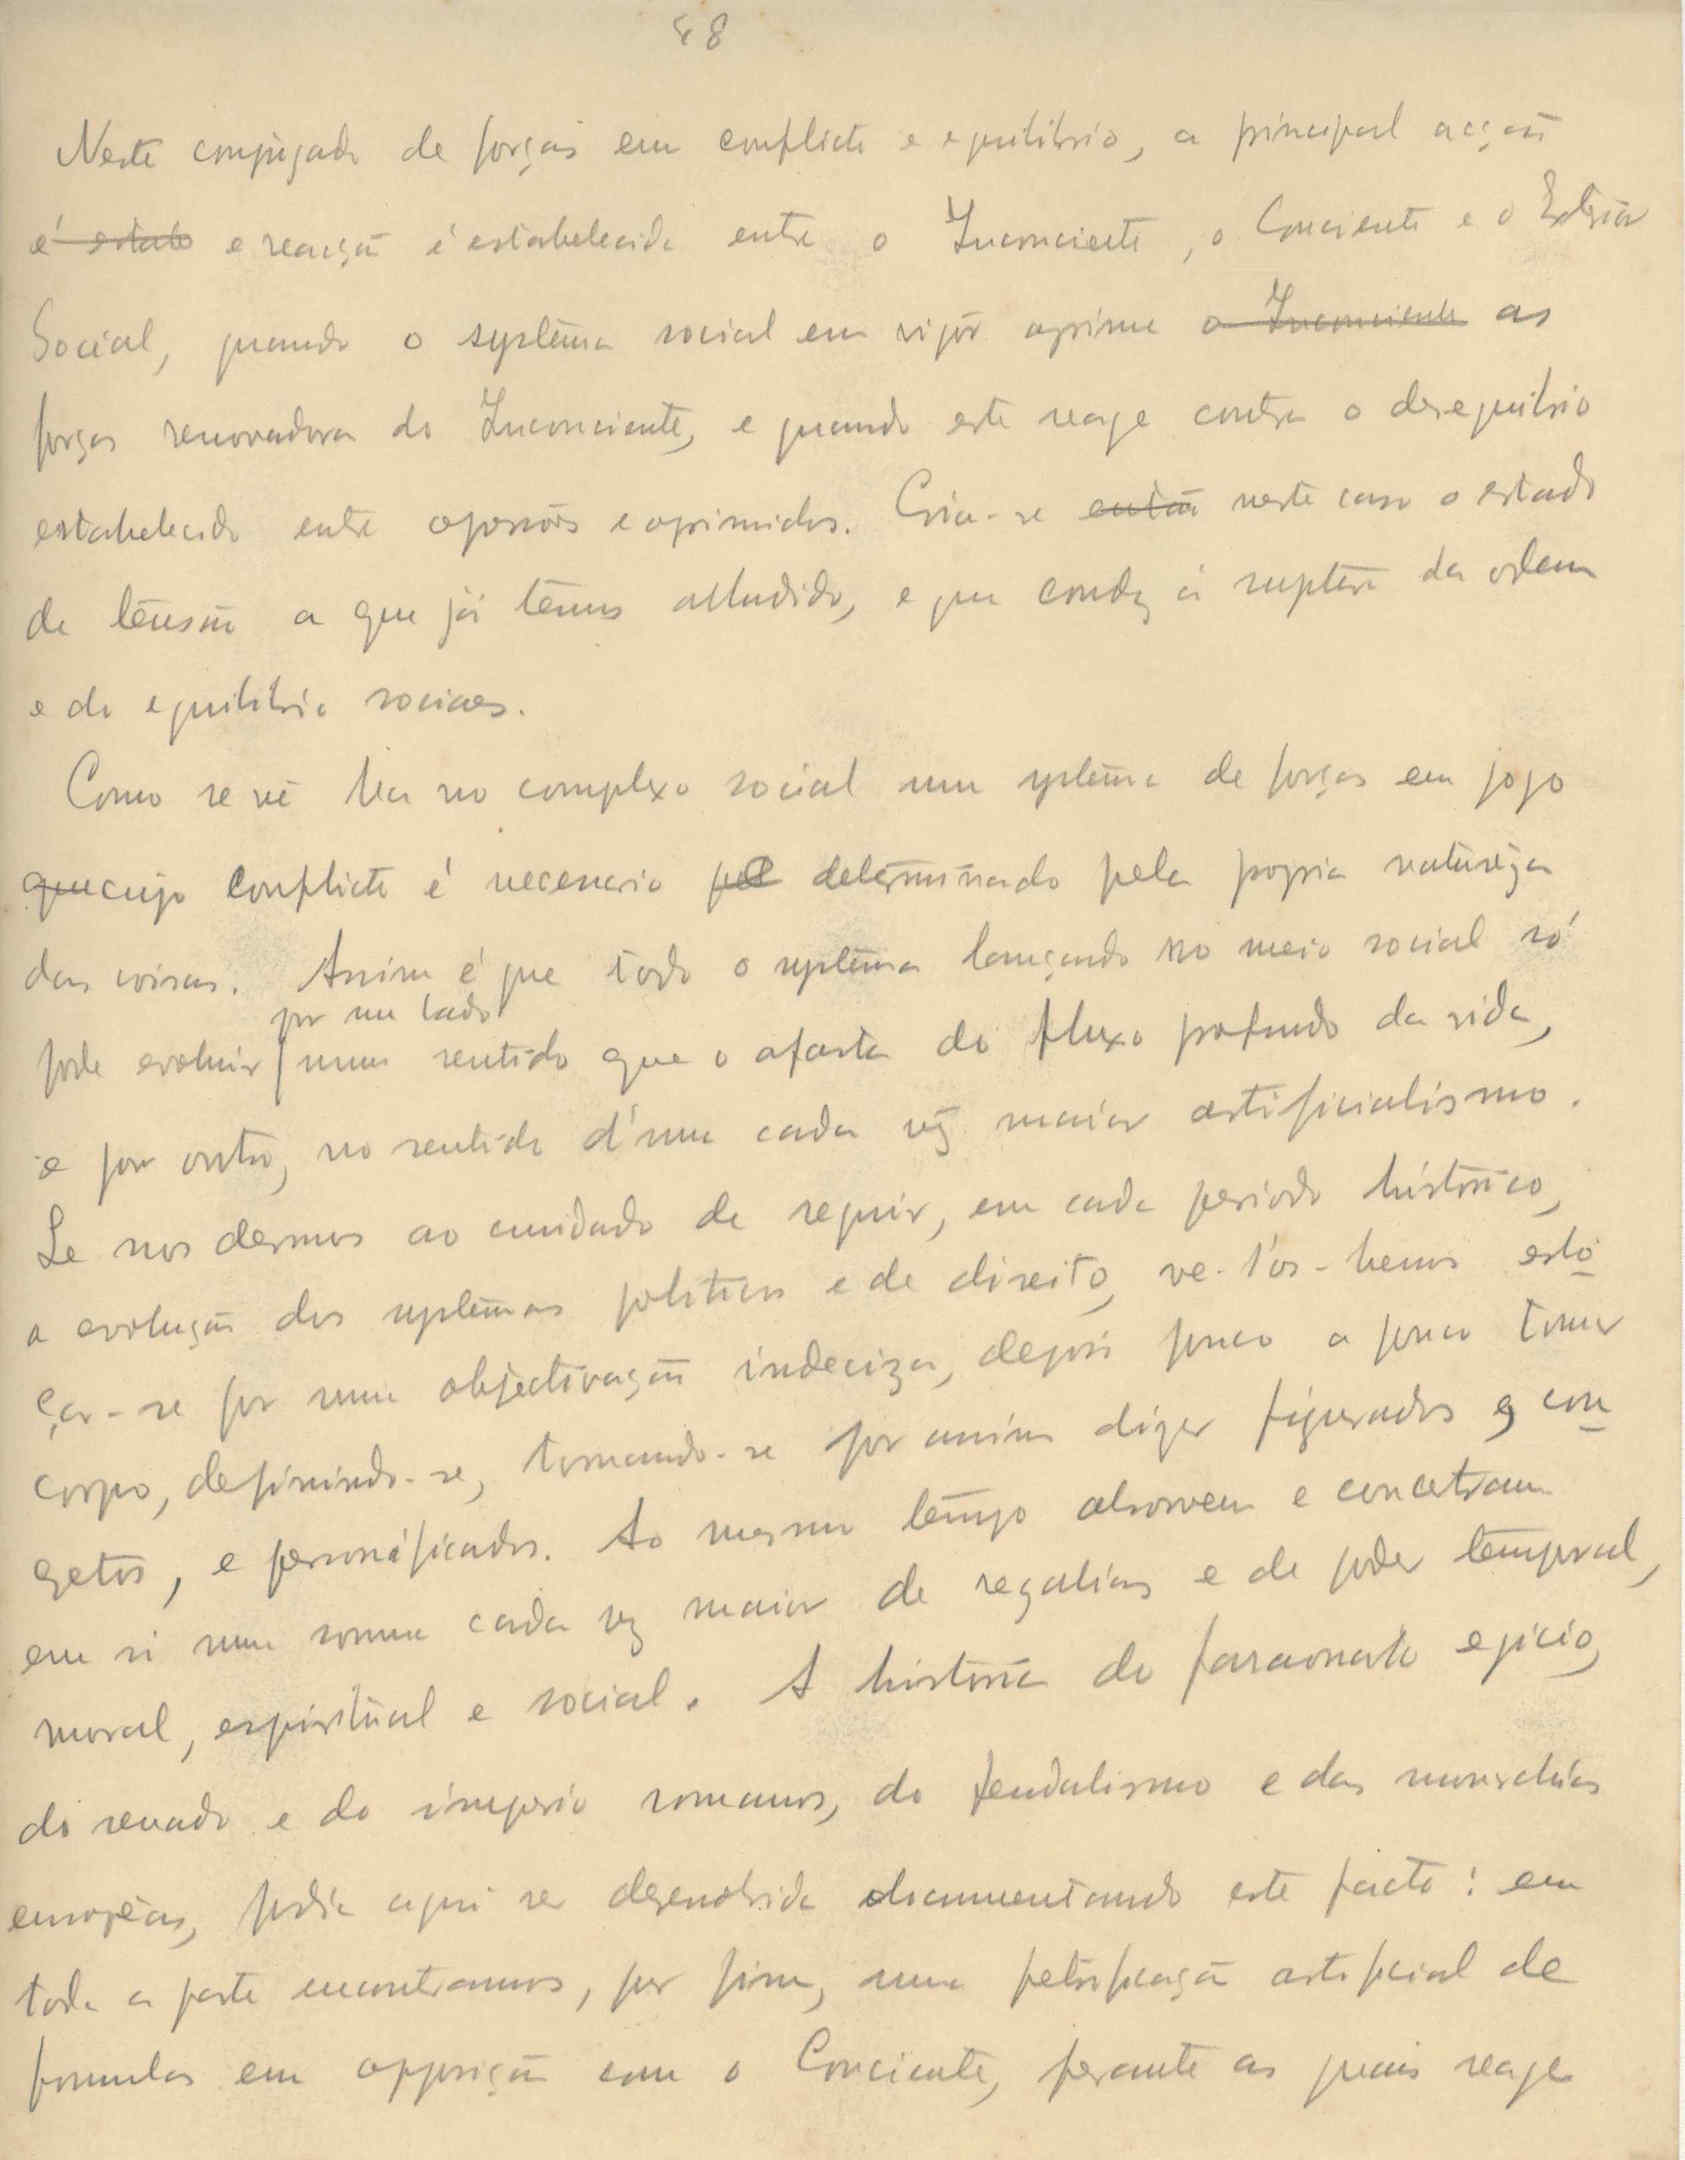 48
Neste conjugado de forças em conflicto e equilibrio, a principal acção
é estabe e reacção é estabelecida entre o Inconciente, o Conciente e o Exterior
Social, quando o systêma social em vigôr oprime o Inconciente as
forças renovadoras do Inconciente, e quando este reage contra o desequilibrio
estabelecido entre opressôres e oprimidos. Cria-se então neste caso o estado
de tensão a que já temos alludido, e que conduz á ruptura da ordem
e do equilibrio sociaes.
Como se vê ha no complexo social um systêma de forças em jogo
que cujo conflicto é necessario determinado pela propria naturêza
das coisas. Assim é que todo o systêma lançado no meio social só
por um lado
pode evoluir num sentido que o afasta do fluxo profundo da vida,
e por outro, no sentido d'um cada vêz maior artificialismo.
Se nos dermos ao cuidado de seguir, em cada periodo histórico,
a evolução dos systêmas politicos e de direito, ve-l'os-hemos esbo
çar-se por uma objectivação indeciza, depois pouco a pouco tomar
corpo, definindo-se, tornando-se por assim dizer figurados e con
cretos, e personificados. Ao mesmo têmpo absorvem e concetram
em si uma somma cada vez maior de regalias e de poder temporal,
moral, espiritual e social. A história do faraonato egicio,
do senado e do imperio romanos, do feudalismo e das monarchias
européas, podia aqui ser dezenvolvida documentando este facto: em
toda a parte encontramos, por fim, uma petrificação artificial de
formulas em opposição com o Conciente, perante as quais reage